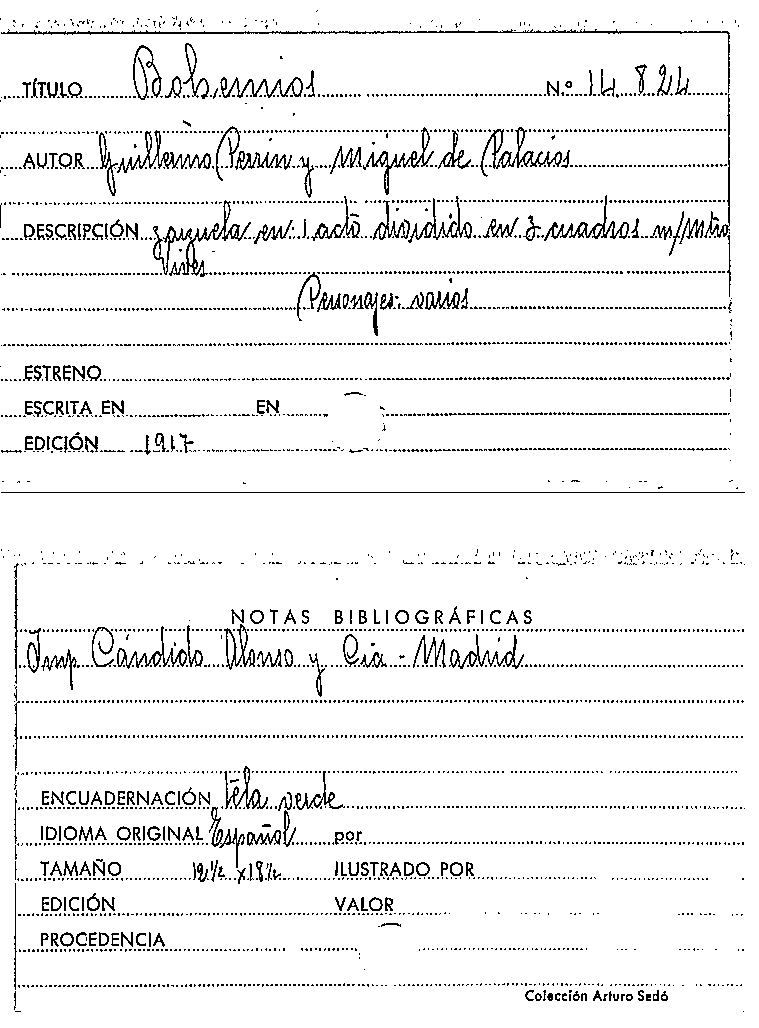 TÍTULO Bohemios N.º 14824
AUTOR Guillermo Perrin y Miguel de Palacios
DESCRIPCIÓN zarzuela en 1 acto dividido en 3 cuadros m/mtro
Vives
Personajes: varios
ESTRENO
ESCRITA EN EN
EDICIÓN 1917
NOTAS BIBLIOGRÁFICAS
Imp Cándido Alonso y Cia - Madrid
ENCUADERNACIÓN tela verde
IDIOMA ORIGINAL Español por
TAMAÑO 12½ x 18½ ILUSTRADO POR
EDICIÓN VALOR
PROCEDENCIA
Colección Arturo Sedó